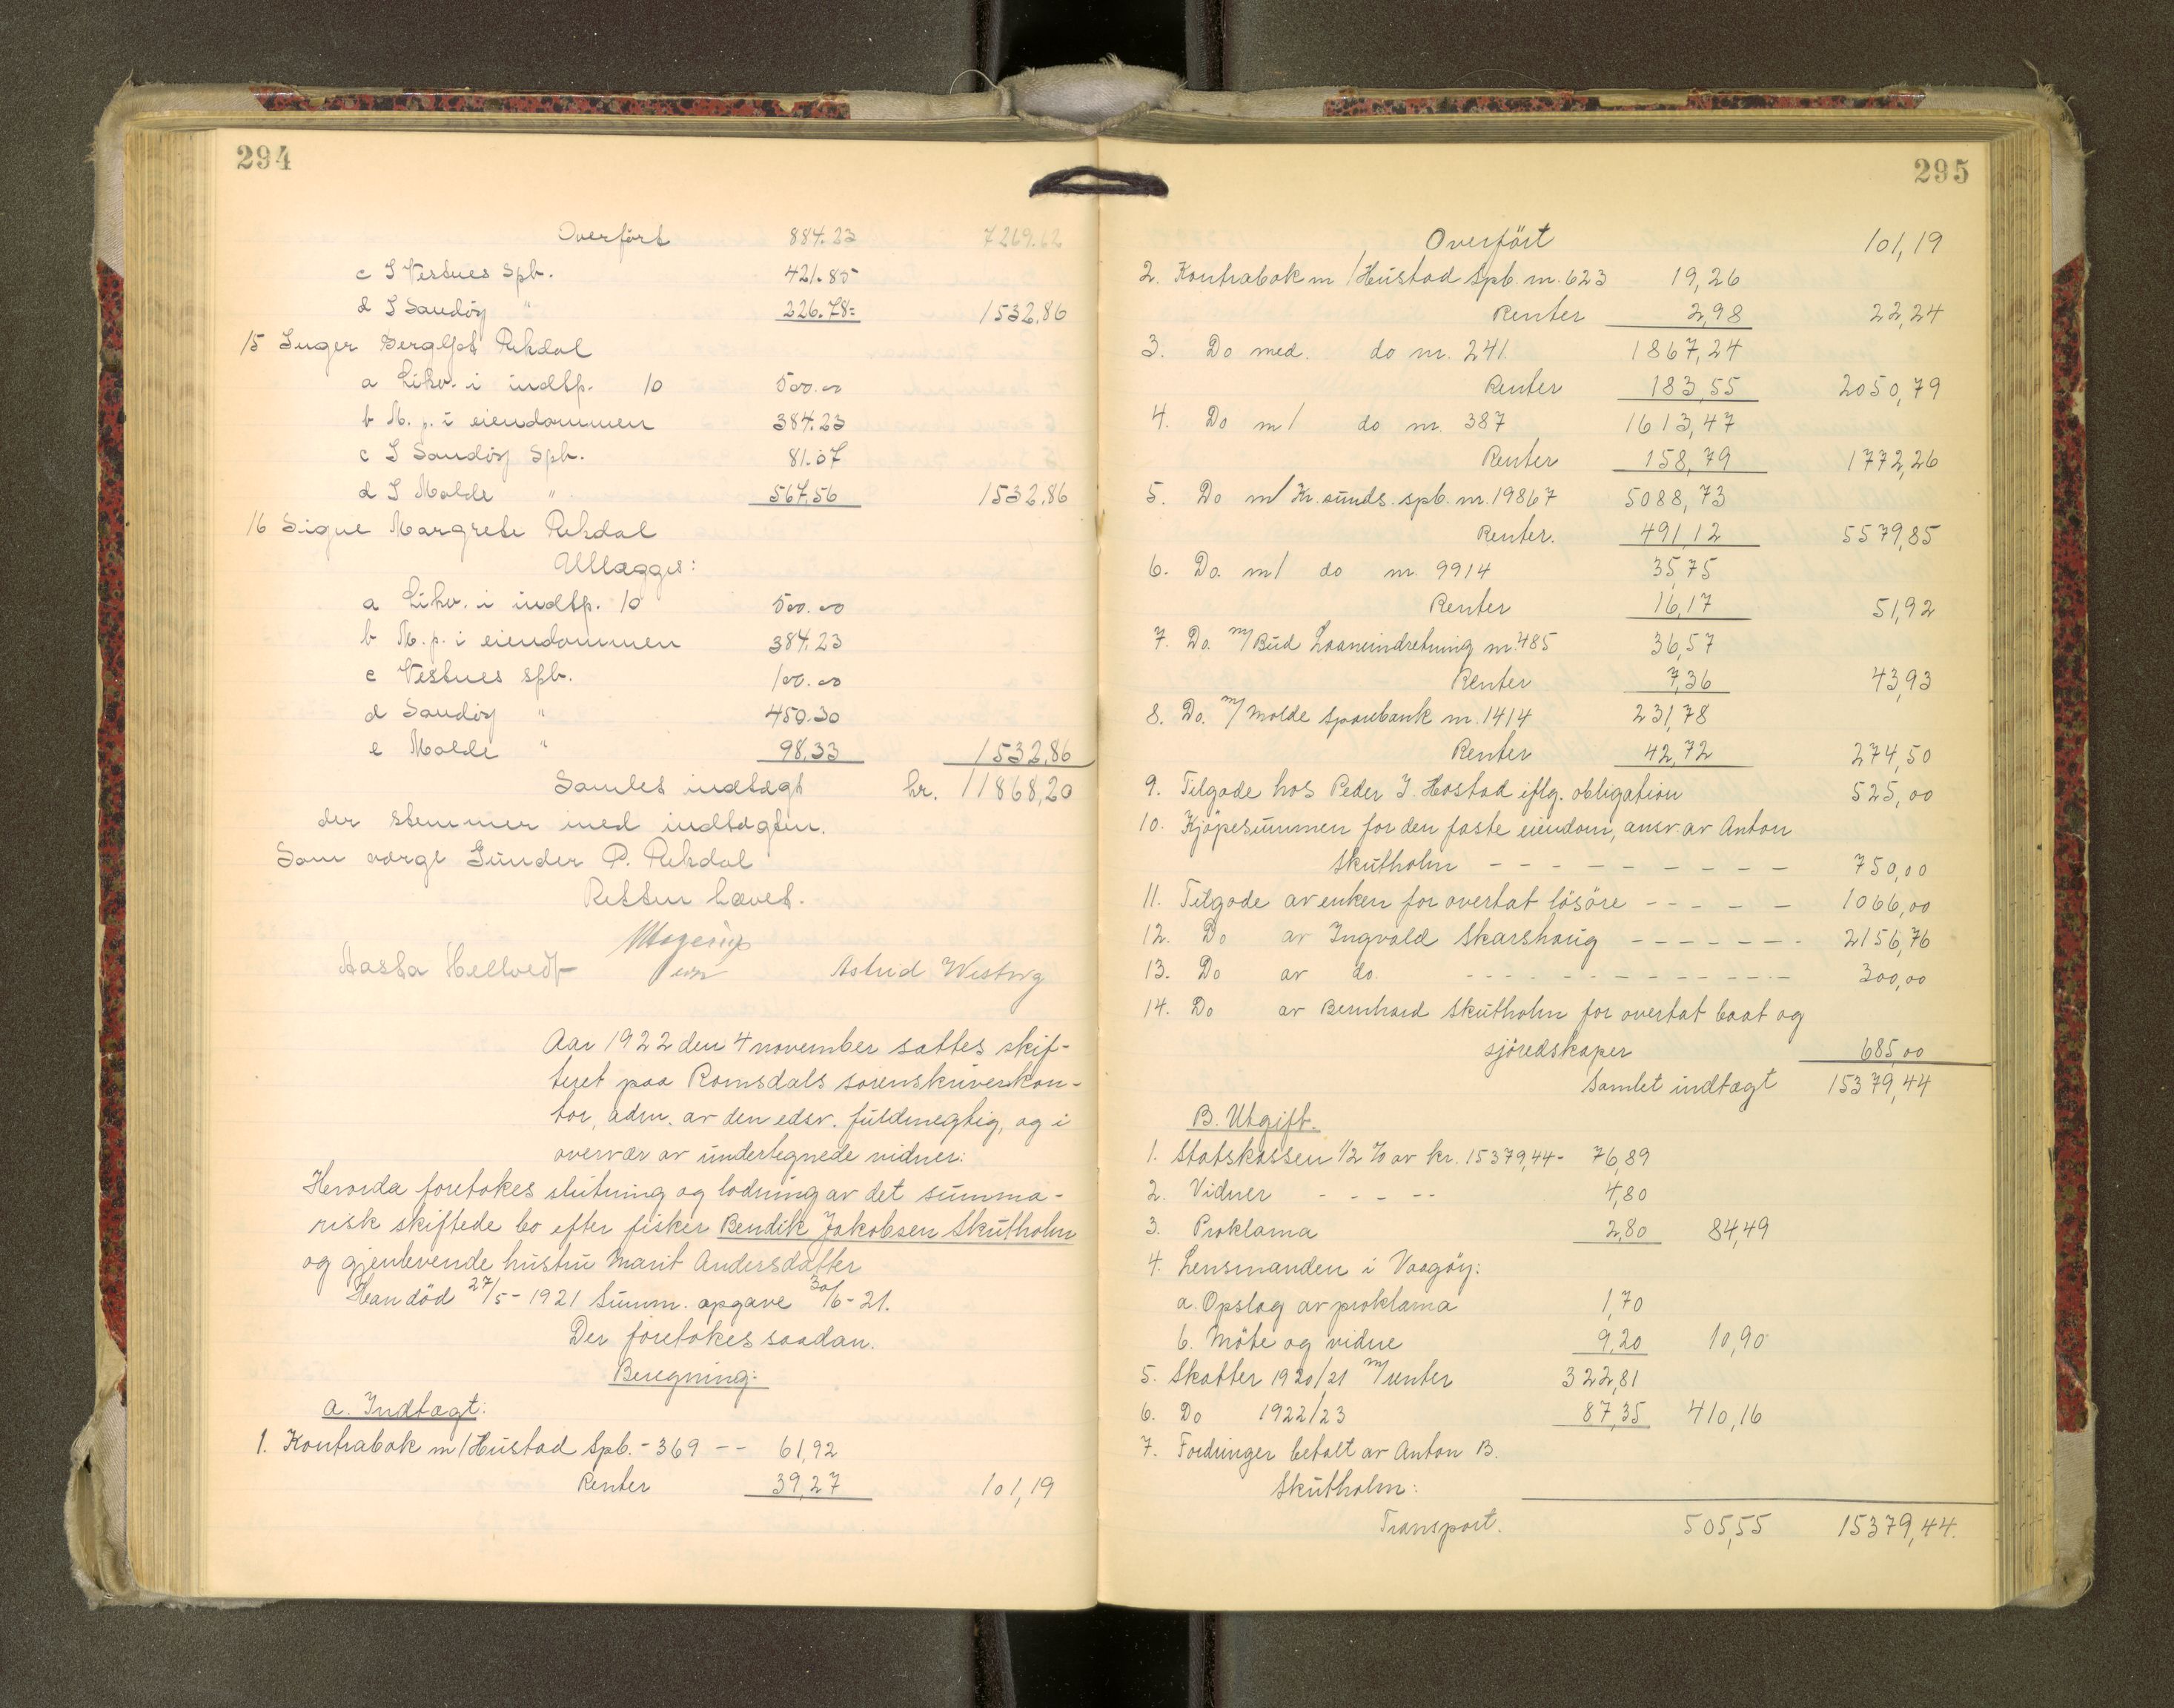 294
Overført 884.23 7269.62
c I Vestnes Spb. 421.85
d I Sandøy " 226.78 1532,86
15 Inger Bergljot Rekdal
a Likv. i indtp. 10 500.00
b M. p. i eiendommen 384.23
c I Sandøy Spb. 81.07
d I Molde " 567,56 1532,86
16 Signe Margrete Rekdal
Utlægges:
a Likv. i indtp. 10 500.00
b M. p. i eiendommen 384.23
c Vestnes spb. 100.00
d Sandøy " 450.30
e Molde " 98.33 1532,86
Samlet indtægt kr. 11868,20
der stemmer med indtægten.
Som værge Gunder P. Rekdal
Retten hævet.
Aasta Hellvedt Astrid Westvig
Aar 1922 den 4 november sattes skif-
teret paa Romsdals sorenskriverkon-
tor, adm. av den edsv. fuldmegtig, og i
overvær av undertegnede vidner:
Hvorda foretokes slutning og lodning av det summa-
risk skiftede bo efter fisker Bendik Jakobsen Skutholm
og gjenlevende hustru Marit Andersdatter
Han död 27/5-1921 Summ. opgave 30/6-21.
Der foretokes saadan.
Beregning:
a. Indtægt:
1. Kontrabok m/Hustad Spb. - 369 -- 61,92
Renter 39,27 101,19
295
Overfört 101,19
2. Kontrabok m/Hustad Spb. nr. 623 19,26
Renter 2,98 22,24
3. Do med. do nr. 241. 1867,24
Renter 183,55 2050,79
4. Do m/ do nr. 387 1613,47
Renter 158,79 1772,26
5. Do m/ Kr.sunds. spb. nr. 19867 5088,73
Renter. 491,12 5579,85
6. Do. m/ do nr. 9914 35,75
Renter 16,17 51,92
7. Do. m/Bud Laaneindretning nr. 485 36,57
Renter 7,36 43,93
8. Do. m/Molde Sparebank nr. 1414 231,78
Renter 42,72 274,50
9. Tilgode hos Peder J. Hostad iflg. obligation 525,00
10. Kjöpesummen for den faste eiendom, ansv. av Anton
Skutholm - - - - - - - - - 750,00
11. Tilgode av enken for overtat lösöre - - - - - 1066,00
12. Do av Ingvald Skarshaug - - - - - - - 2156,76
13. Do av do. - - - - - - - - - - - - 300,00
14. Do av Bernhard Skutholm for overtat baat og
sjöredskaper 685,00
Samlet indtægt 15379,44
B. Utgift.
1. Statskassen 1/2 % av kr. 15379,44 - 76,89
2. Vidner - - - -- 4,80
3. Proklama 2,80 84,49
4. Lensmanden i Vaagöy:
a. Opslag av proklama 1,70
b. Möte og vidne 9,20 10,90
5. Skatter 1920/21 m/renter 322,81
6. Do 1922/23 87,35 410,16
7. Fordringer betalt av Anton B.
Skutholm:
Transport. 505,55 15379,44.